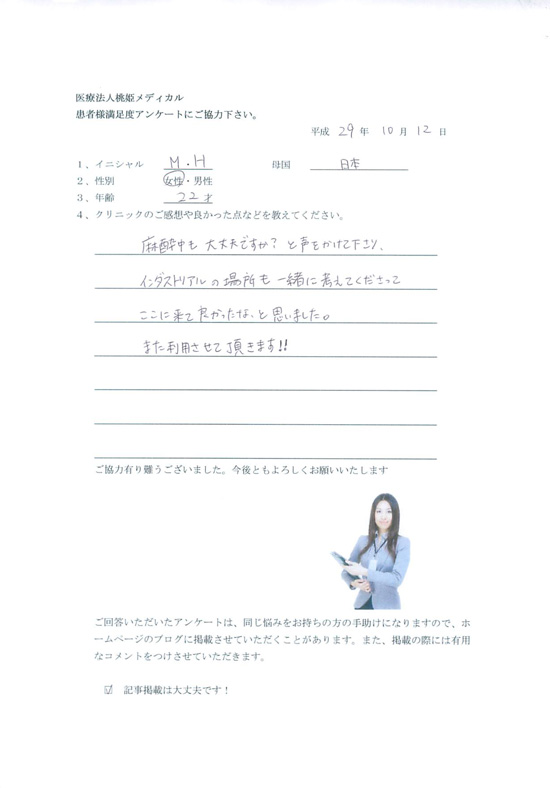 医療法人桃姫メディカル
患者様満足度アンケートにご協力下さい。
平成 29 年 10 月 12 日
1、イニシャル M.H 母国 日本
2、性別 女性・男性
3、年齢 22才
4、クリニックのご感想や良かった点などを教えてください。
麻酔中も大丈夫ですか?と声をかけて下さり、
インダストリアルの場所も一緒に考えてくださって
ここに来て良かったな、と思いました。
また利用させて頂きます!!
ご協力有り難うございました。今後ともよろしくお願いいたします
ご回答いただいたアンケートは、同じ悩みをお持ちの方の手助けになりますので、ホ
ームページのブログに掲載させていただくことがあります。また、掲載の際には有用
なコメントをつけさせていただきます。
☑ 記事掲載は大丈夫です!